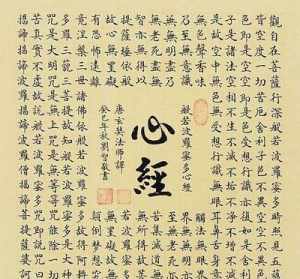 觀自在菩薩行深般若波羅蜜多時照見五蘊
皆空度一切苦厄舍利子色不異空空不異色
色即是空空即是色受想行識亦復如是舍利
子是諸法空相不生不滅不垢不淨不增不減
是故空中無色無受想行識無眼耳鼻舌身意
無色聲香味
觸法無眼界
乃至無意識
界無無明亦
無無明盡乃
至無老死亦
無老死盡無
苦集滅道無
智亦無得以
無所得故菩
提薩埵依般
若波羅蜜多
故心無罣礙
無罣礙故無
有恐怖遠離
顛倒夢想究
竟涅槃三世諸佛依般若波羅蜜多故得阿耨
多羅三藐三菩提故知般若波羅蜜多是大神
咒是大明咒是無上咒是無等等咒能除一切
苦真實不虛故說般若波羅蜜多咒即說咒曰
揭諦揭諦波羅揭諦波羅僧揭諦菩提薩婆訶
般若波羅蜜多心經
心經
唐玄奘法師譯
癸巳年秋劉智敬書